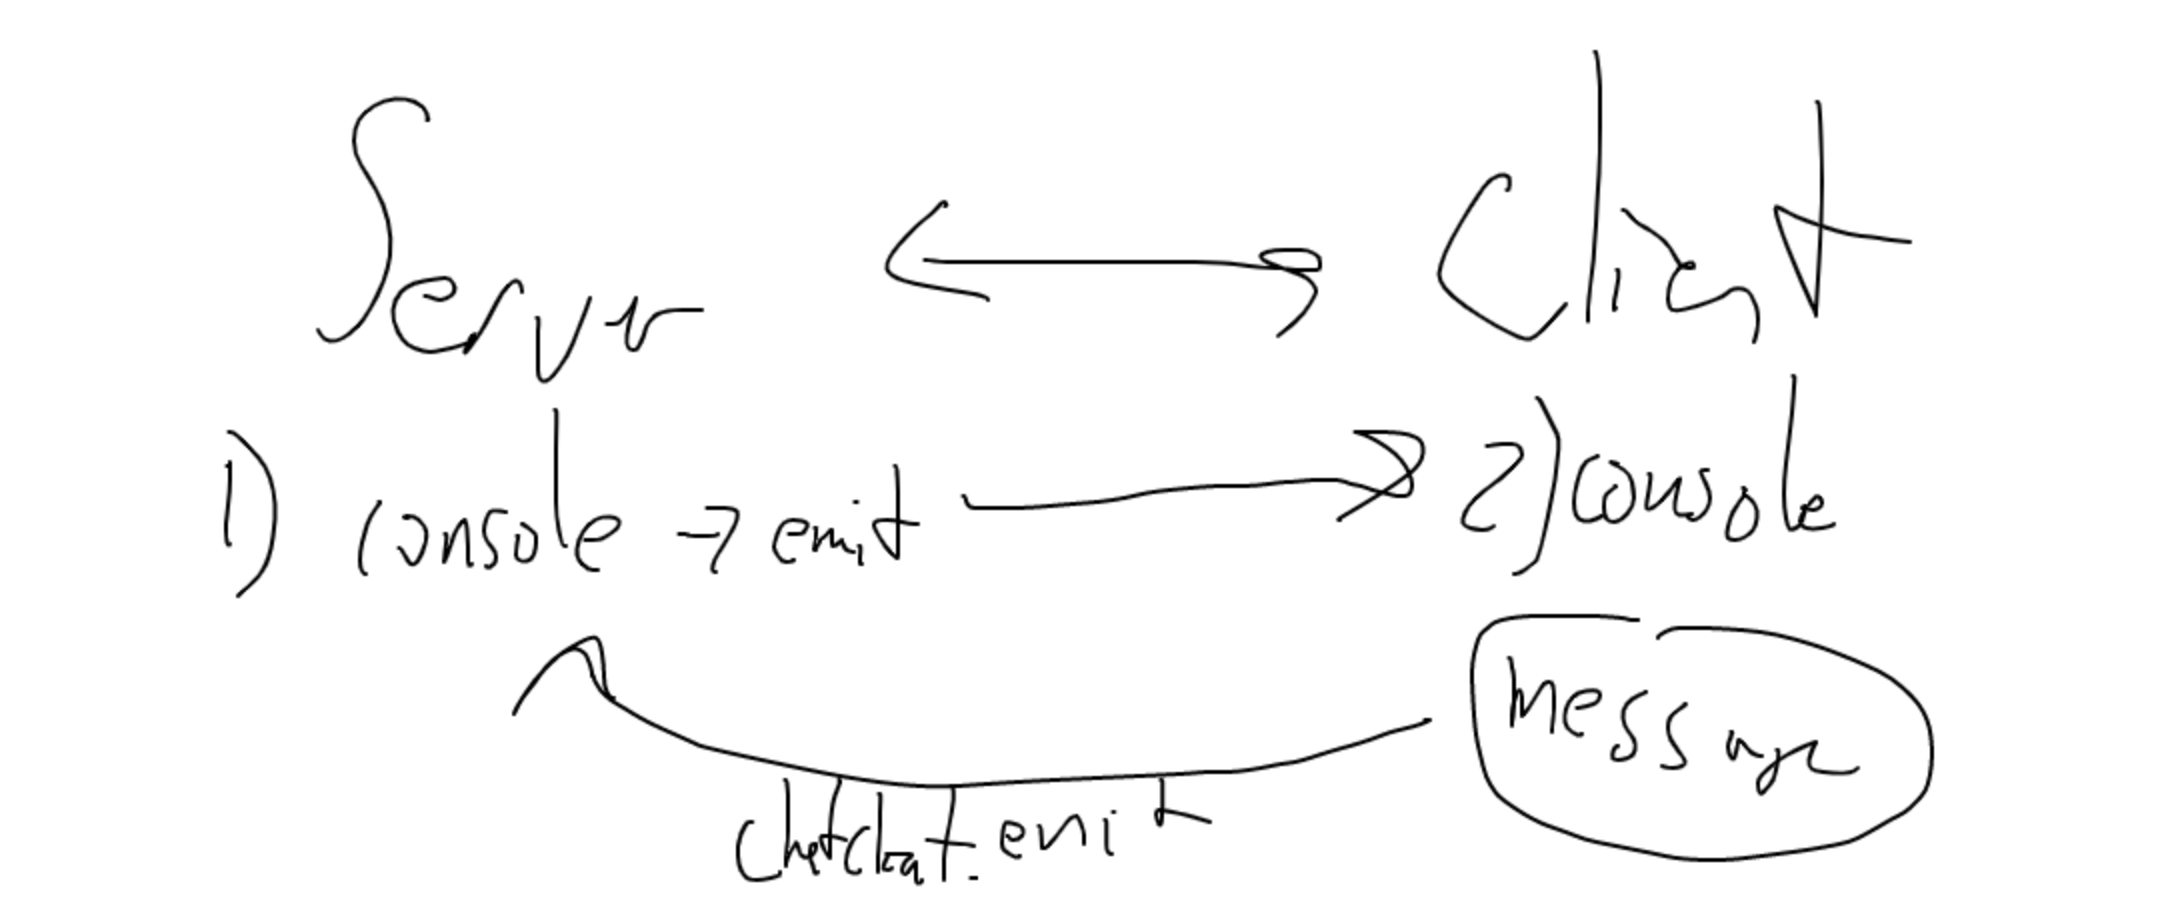 Server Client
1) console → emit 2) console
message
chatchat.emit